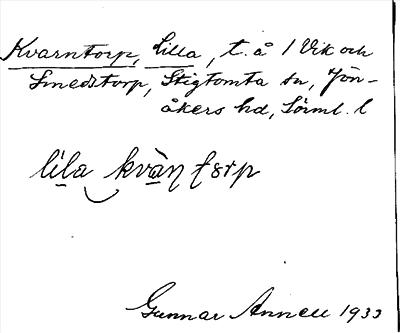 Kvarntorp, Lilla, t. å 1 Vik och
Smedstorp, Stigtomta sn, Jön-
åkers hd, Sörml. l
lila kvàɳ tɔrp
Gunnar Annell 1933